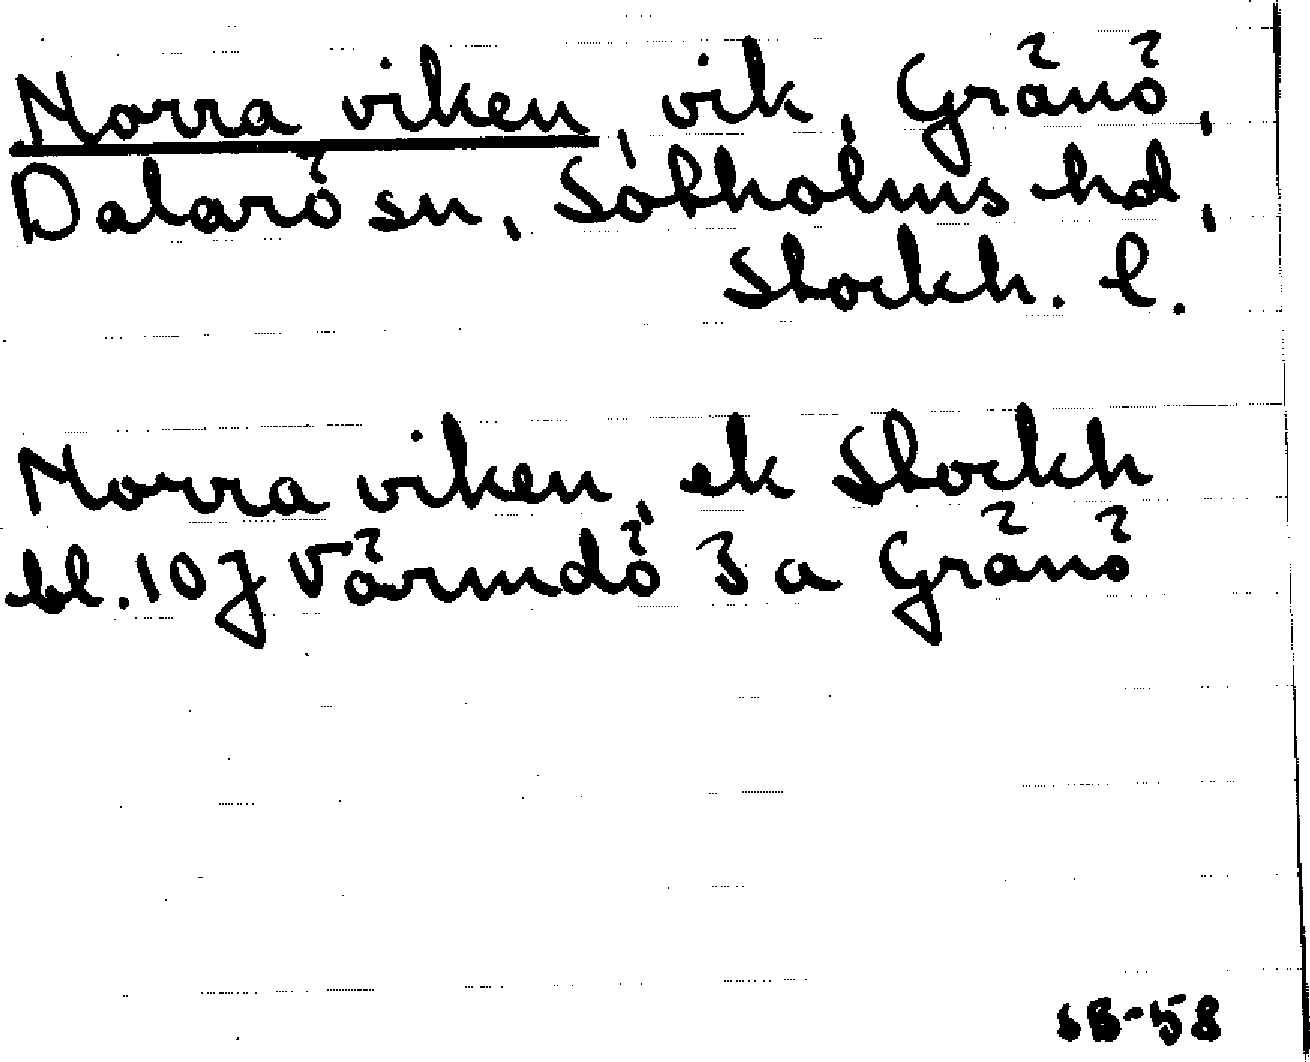 Norra viken, vik, Gränö,
Dalarö sn, Sotholms hd,
Stockh. l.
Norra viken, ek Stockh
bl. 10J Värmdö 3 a Gränö
SB-58